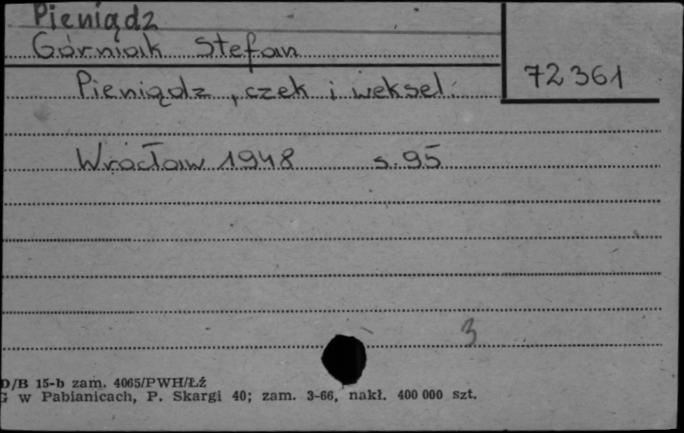 Pieniądz
Górniak Stefan
72361
Pieniądz, czek i weksel.
Wrocław 1948 s. 95
3
D/B 15-b zam. 4065/PWH/Łź
G w Pabianicach, P. Skargi 40; zam. 3-66, nakł. 400 000 szt.